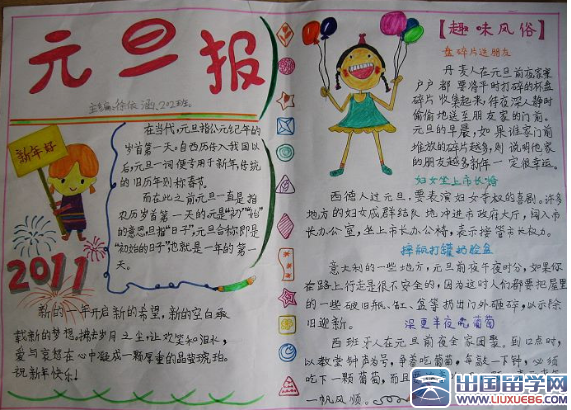 元旦报
主编:徐依涵 202班
新年好
2011
在当代,元旦指公元纪年的
岁首第一天。自西历传入我国以
后,元旦一词便专用于新年,传统
的旧历年则称春节。
而在此之前元旦一直是指
农历岁首第一天的元是"初""始"
的意思,旦指"日子",元旦合称即是
"初始的日子",也就是一年的第一
天。
新的一年开启新的希望,新的空白承
载新的梦想。拂去岁月之尘,让欢笑和泪水,
爱与哀愁在心中凝成一颗厚重的晶莹琥珀。
祝新年快乐!
【趣味风俗】
盘碎片送朋友
丹麦人在元旦前夜家家
户户都要将平时打碎的杯盘
碎片收集起来,待夜深人静时
偷偷地送至朋友家的门前。
元旦的早晨,如果谁家门前
堆放的碎片越多,则说明他家
的朋友越多新年一定很幸运。
妇女坐上市长椅
西德人过元旦,要表演妇女夺权的喜剧。许多
地方的妇女成群结队地冲进市政府大厅,闯入市
长办公室,坐上市长办公椅,表示接管市长权力。
摔瓶打罐扔脸盆
意大利的一些地方,元旦前夜午夜时分,如果你
在路上行走是很不安全的,因为这时人们都要把屋里
的一些破旧瓶、缸、盆等扔出门外砸碎,以示除
旧迎新。
深更半夜吃葡萄
西班牙人在元旦前夜全家团聚。到12点时,
以教堂钟声为号,争着吃葡萄,每敲一下钟,必须
吃下一颗葡萄,而且
一帆风顺。
出国留学网
WWW.LIUXUE86.COM